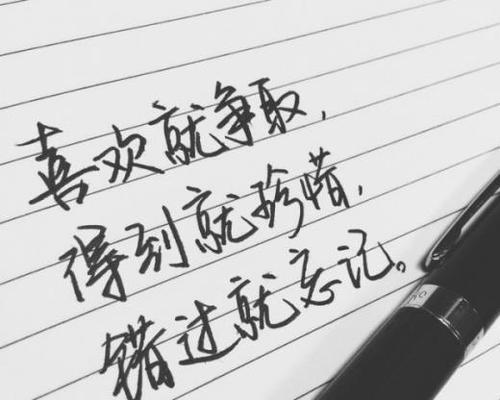 喜欢就争取,
得到就珍惜,
错过就忘记。